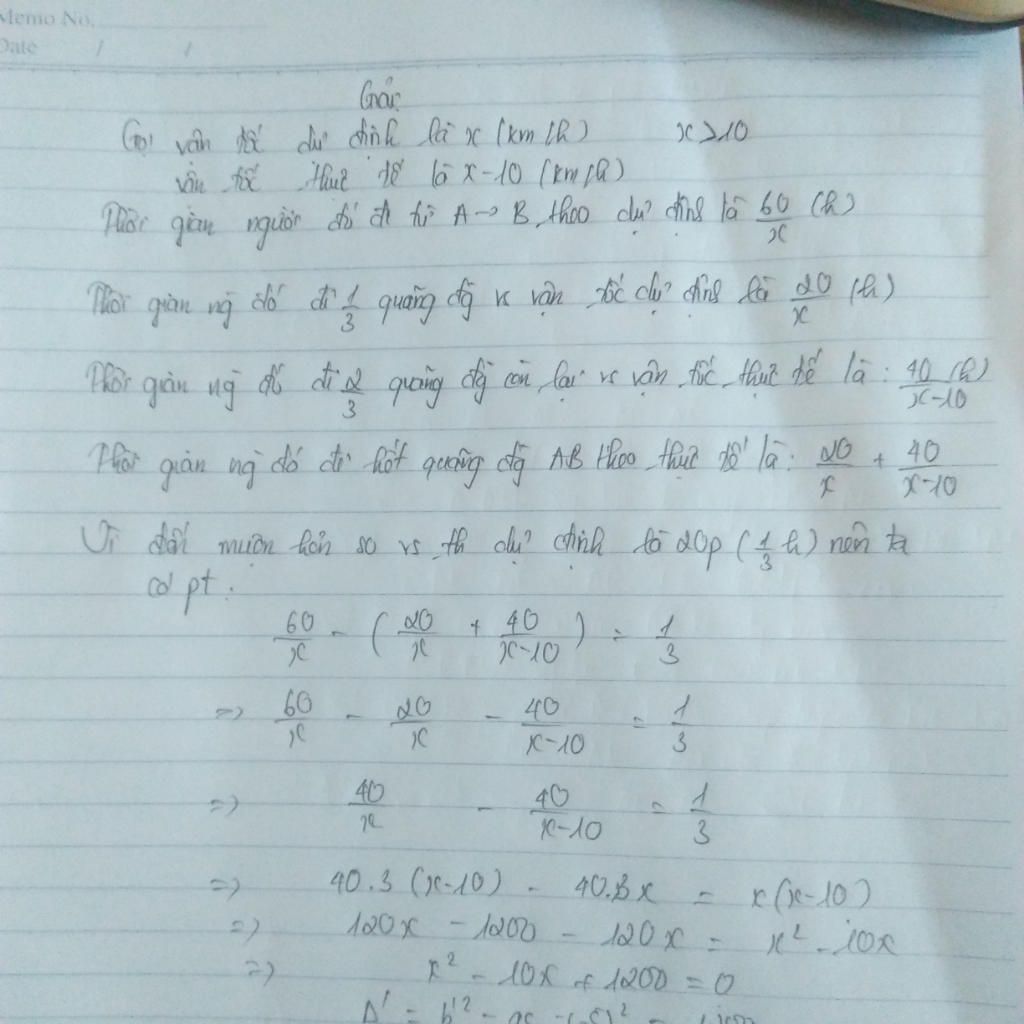 Memo No.
Date / /
Giải
Gọi vận tốc dự định là x (km/h) x>10
vận tốc thực tế là x-10 (km/h)
Thời gian người đó đi từ A → B theo dự định là 60/x (h)
Thời gian ng đó đi 1/3 quãng đg vs vận tốc dự định là 20/x (h)
Thời gian ng đó đi 2/3 quãng đg còn lại vs vận tốc thực tế là : 40/(x-10) (h)
Thời gian ng đó đi hết quãng đg AB theo thực tế là: 20/x + 40/(x-10)
Vì đến muộn hơn so vs th dự định là 20p (1/3 h) nên ta
có pt :
60/x - (20/x + 40/(x-10)) = 1/3
=> 60/x - 20/x - 40/(x-10) = 1/3
=> 40/x - 40/(x-10) = 1/3
=> 40.3 (x-10) - 40.3x = x(x-10)
=> 120x - 1200 - 120x = x² - 10x
=> x² - 10x + 1200 = 0
Δ' = b'² - ac = (-5)² -